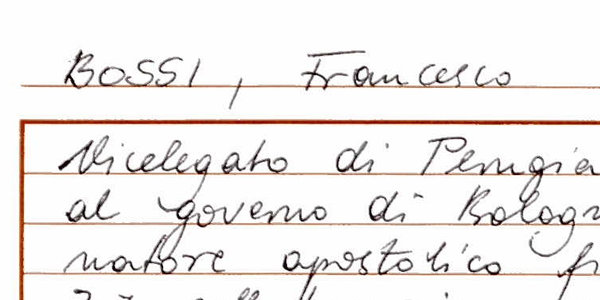 BOSSI, Francesco
Vicelegato di Perugia
al governo di Bologn
natore apostolico fr